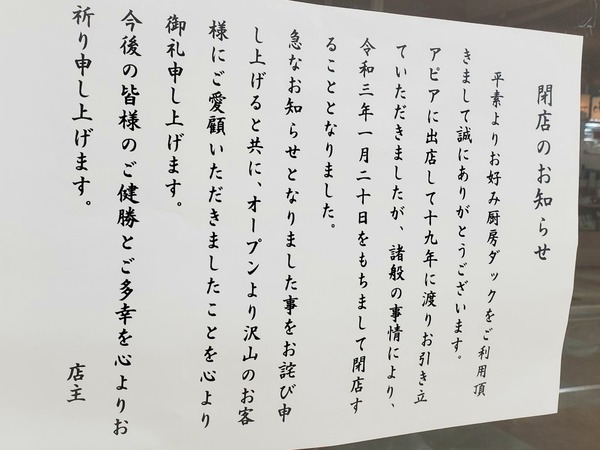 閉店のお知らせ
平素よりお好み厨房ダックをご利用頂
きまして誠にありがとうございます。
アピアに出店して十九年に渡りお引き立
ていただきましたが、諸般の事情により、
令和三年一月二十日をもちまして閉店す
ることとなりました。
急なお知らせとなりました事をお詫び申
し上げると共に、オープンより沢山のお客
様にご愛顧いただきましたことを心より
御礼申し上げます。
今後の皆様のご健勝とご多幸を心よりお
祈り申し上げます。
店主